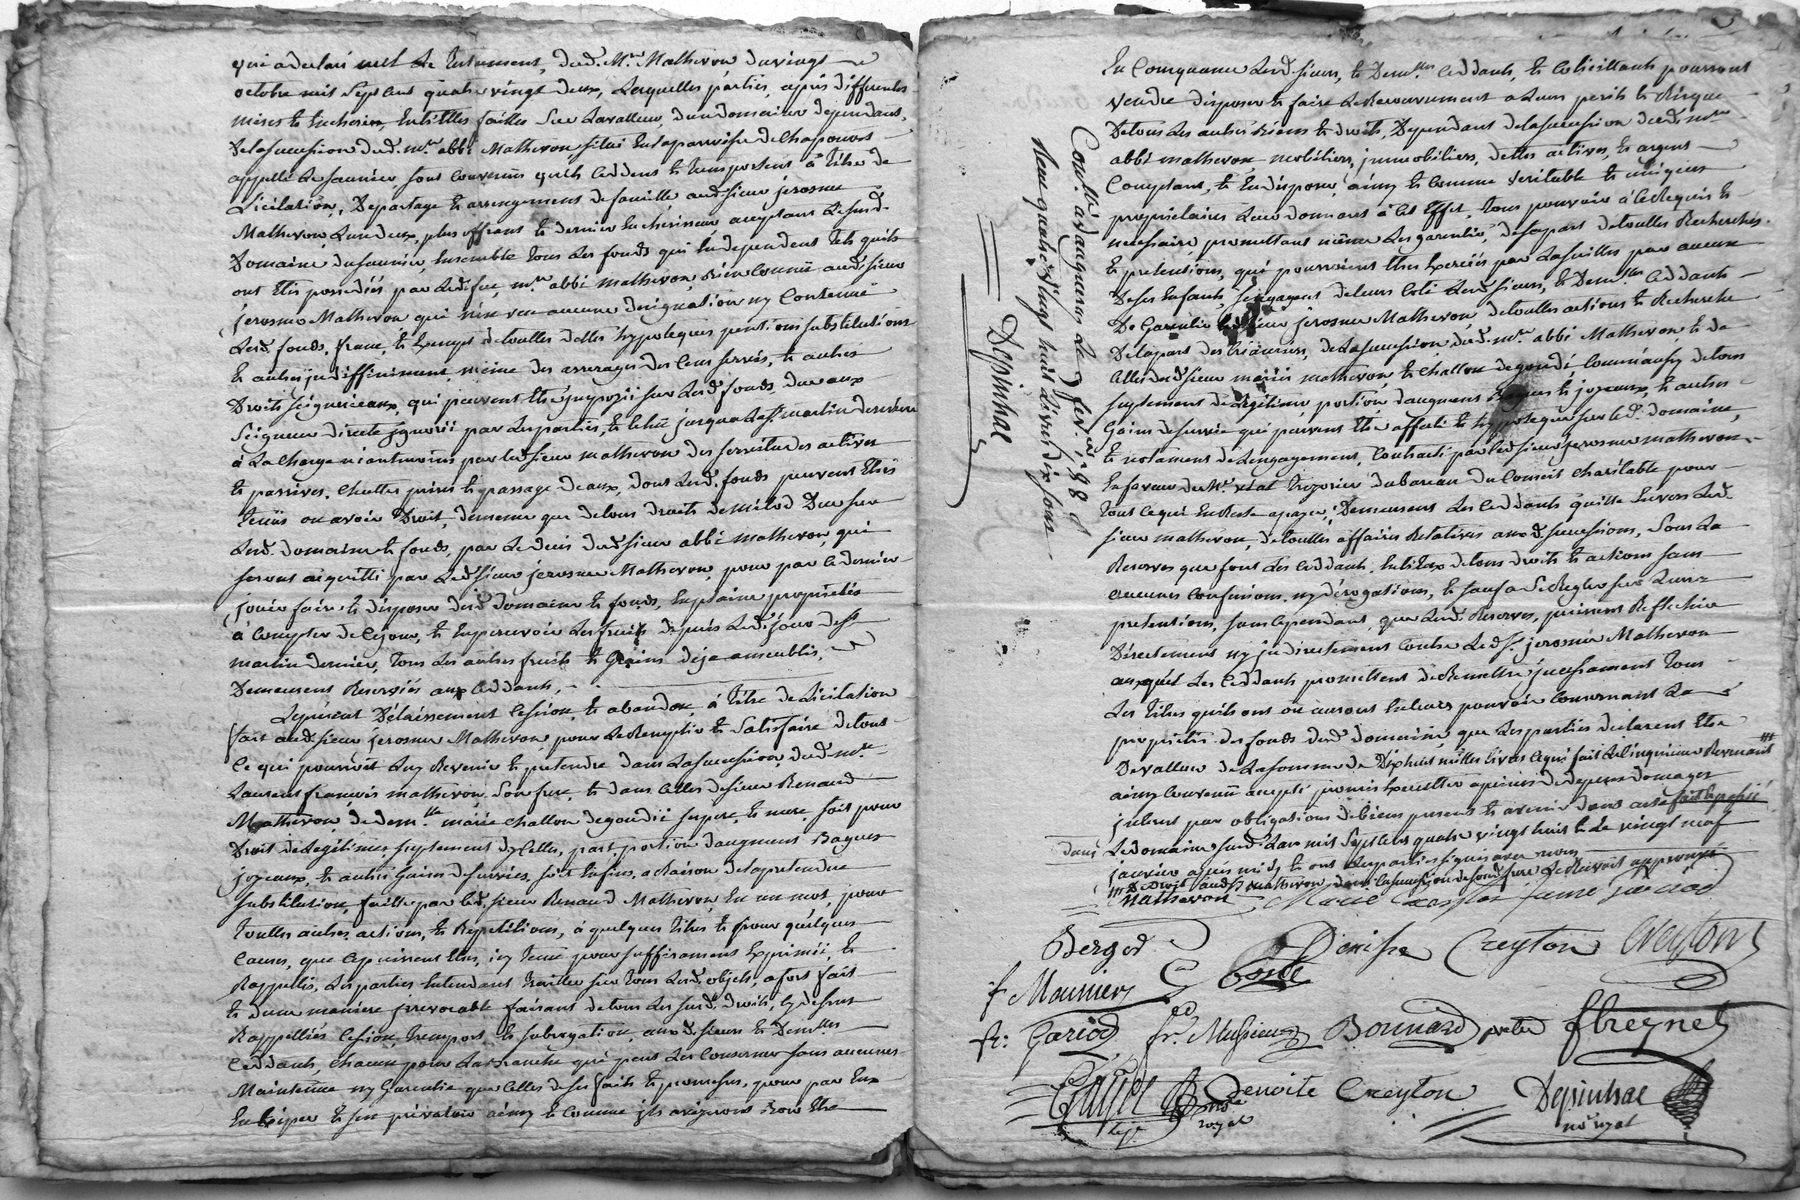 qui a declaré nul le testament, dud. Mre Mathevon du vingt
octobre mil sept cent quatre vingt deux, lesquelles parties, après differentes
mises et encheres, entr'elles faittes sur la valleur, d'un domaine dependant,
de la succession dud. mre abbé Mathevon, situé en la parroisse de Chaponost
appellé le saunier sont convenus qu'ils ceddent et transportent à titre de
licitation, de partage et arrengement de famille aud. sieur jerosme
Mathevon, l'un d'eux, plus offrant et dernier encherisseur, acceptant led.
Domaine du saunier, ensemble tous les fonds qui en dependent tels qu'ils
ont étés possedés par led. feu mre abbé mathevon, bien connus aud. sieur
jerosme Mathevon qui n'en veu aucune designation ny contenue
lesd. fonds, franc, et exempt de touttes dettes hypoteques pentions substitutions
et autres indiffiniment, même des arrerages des cens servis, et autres
Droits seigneuriaux, qui peuvent être imposés sur lesd. fonds, due aux
seigneur directe ignorés par les parties, et échu jusqu'a la st martin derniere
à la charge neantmoins par led. sieur mathevon des servitudes actives
et passives, chuttes prises et passage d'eaux, dont lesd. fonds peuvent être
tenus ou avoir Droit, de meme que de tous droits de milod due sur
lesd. domaine et fonds, par le deces dud. sieur abbé mathevon, qui
seront acquittés par led. sieur jerosme Mathevon, pour par ce dernier
jouir faire et disposer desd. domaine et fonds, en plaine propriété
à compter de ce jour, et en percevoir les fruits depuis led. jour de st
martin dernier, tous les autres fruits et grains deja ameublis,
Demeurent Reservés aux ceddants,
Le présent Délaissement cession, et abandon, à titre de licitation
fait aud. sieur jerosme Mathevon, pour le Remplir et satisfaire de tout
ce qui pourroit luy Revenir et pretendre dans la succession, dud. mre
Laurent françois mathevon son frere, et dans celles de sieur Renaud
Mathevon, de dem.lle marie challon de gondié ses pere, et mere, soit pour
Droit de legitimes suplement d'ycelles, part, portion d'augment Bagues
joyeaux, et autres gains de survies, soit enfin, a Raison de la pretendue
substitution, faitte par led. sieur Renaud Mathevon, en un mot, pour
touttes autres, actions, et Repetitions, à quelques titres et pour quelques
causes, que ce puissent etre, icy tenus pour suffisament exprimés, et
Rappellés, les parties entendant traitter sur tous lesd. objets, a fort fait
et d'une maniere irrevocable faisant de tous les susd. droits, cy dessus
Rappellés cession, transport, et subrogation, auxd. sieurs et Dem.lles
ceddants, chacun pour la branche qui peut les concerner sans aucunes
Maintenue ny Garentie que celles de ses faits et promesses, pour par eux
en exiper et s'en prevaloir ainsy et comme ils aviseront bon être
En consequence lesd. sieurs, et Dem.lles ceddants, et licitants pourront
vendre disposer et faire le Recouvrement a leurs perils et Risque
De tous les autres biens et droits, dependant de la succession dud. mre
abbé mathevon mobiliers, immobiliers, dettes actives, et argent
comptant, et en disposer, ainsy et comme veritable et uniques
propriétaires leur donnant à cet effet, tous pouvoirs à ce Requis et
necessaire, promettant même les garentir, de sa part de touttes Recherches
et pretentions, qui pourroient être exercées par la suitte par aucun
De ses enfants, s'engagent de leurs coté lesd. sieurs, et Dem.lles ceddants
De Garentir led. sieur jerosme Mathevon de touttes actions et Recherche
De la part des créanciers, de la succession, dud. mre abbé Mathevon, et de
celles dud. sieur mathevon et challon de gondié, comm'aussy de tous
suplement de legitime, portion d'augment bagues et joyeaux, et autres
Gains de survie qui peuvent être affecté et hypotequer sur led. domaine,
et notament de l'engagement, contracté par led. sieur jerosme mathevon
en faveur de Mr. réal tresorier du bureau du conseil charitable pour
tout ce qui en Reste a payer; Demeurent les ceddants quitte envers led.
sieur mathevon, de touttes affaires Relatives auxd. successions, sous la
Reserves que font les ceddants, entr'eux de tous droits et actions sans
aucunes confusions, ny dérogations, et sauf a se Regler sur leurs
pretentions, sans cependant, que lesd. Reserves, puissent Reflechir
Directement ny indirectement contre led. s.r jerosme Mathevon
auquel les ceddants promettent de Remettre incessament tous
les titres qu'ils ont ou auront en leurs pouvoir concernant la
proprieté des fonds dud. domaine, que les parties declarent être
De valleur de la somme de Dix huit milles livres
ainsy convenu accepté promis executter a peines de depens domages
interest par obligations de biens present et avenir dont acte fait et passé
dans led. domaine susd. l'an mil sept cent quatre vingt huit et le vingt neuf
janvier après midy, et ont les parties signé avec nous
Mathevon
Berger Denisse Creyton Creyton
f Mounier
fr: Gariod Bonnard f Breynet
Benoite Creyton Depinhac
no.re royal no.re royal
Con.llé a vaugneray le 7 fev.er 1788
Reçu quatre vingt huit livres dix sous
Depinhac